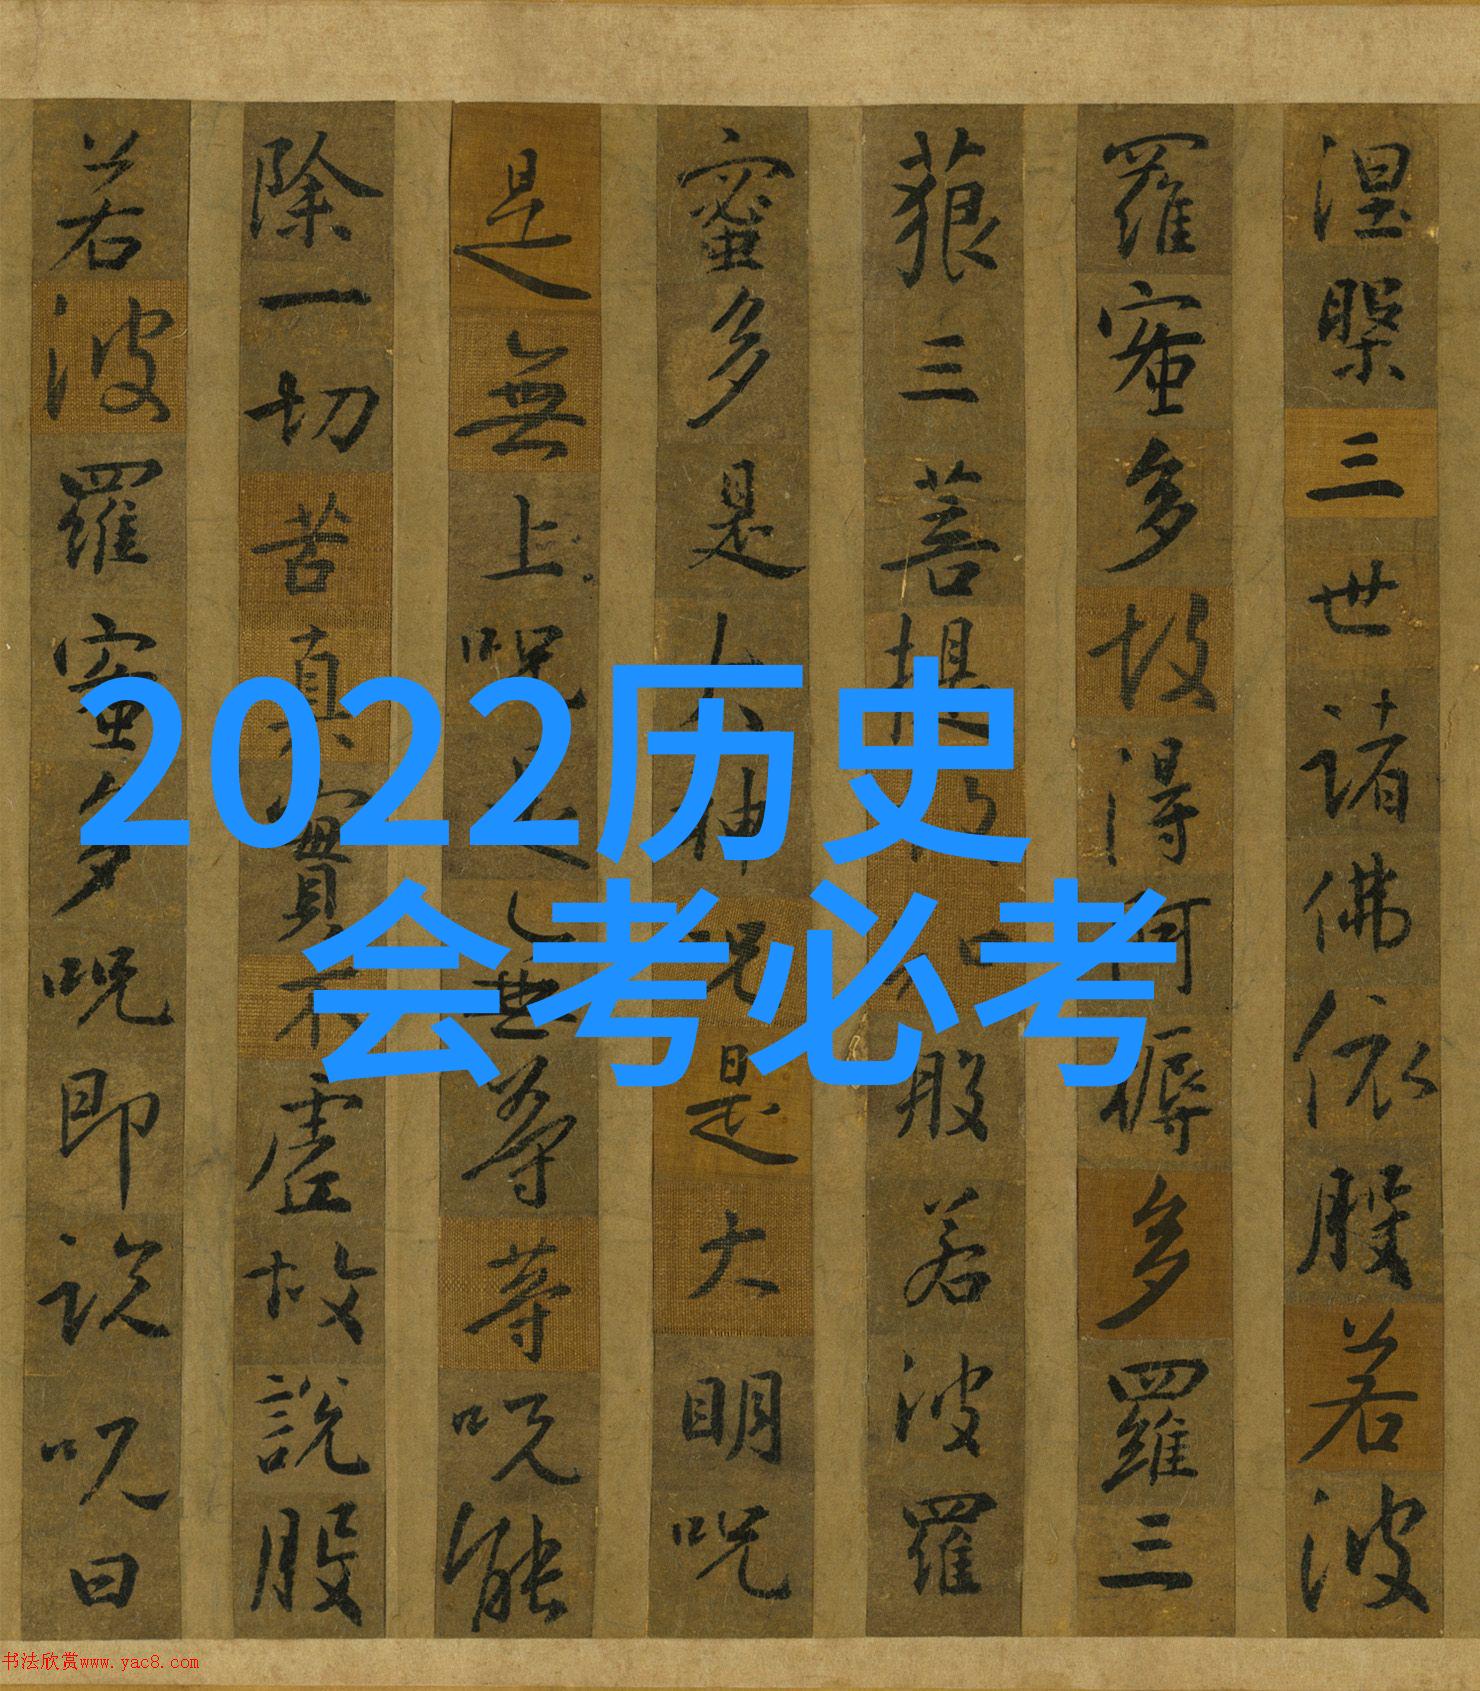 涅槃三世諸佛依般若波
羅蜜多故得阿耨多羅三
藐三菩提故知般若波羅
蜜多是大神呪是大明呪
是無上呪是無等等呪能
除一切苦真實不虛故說般
若波羅蜜多呪即說呪曰
2022历史
会考必考
书法欣赏www.yac8.com